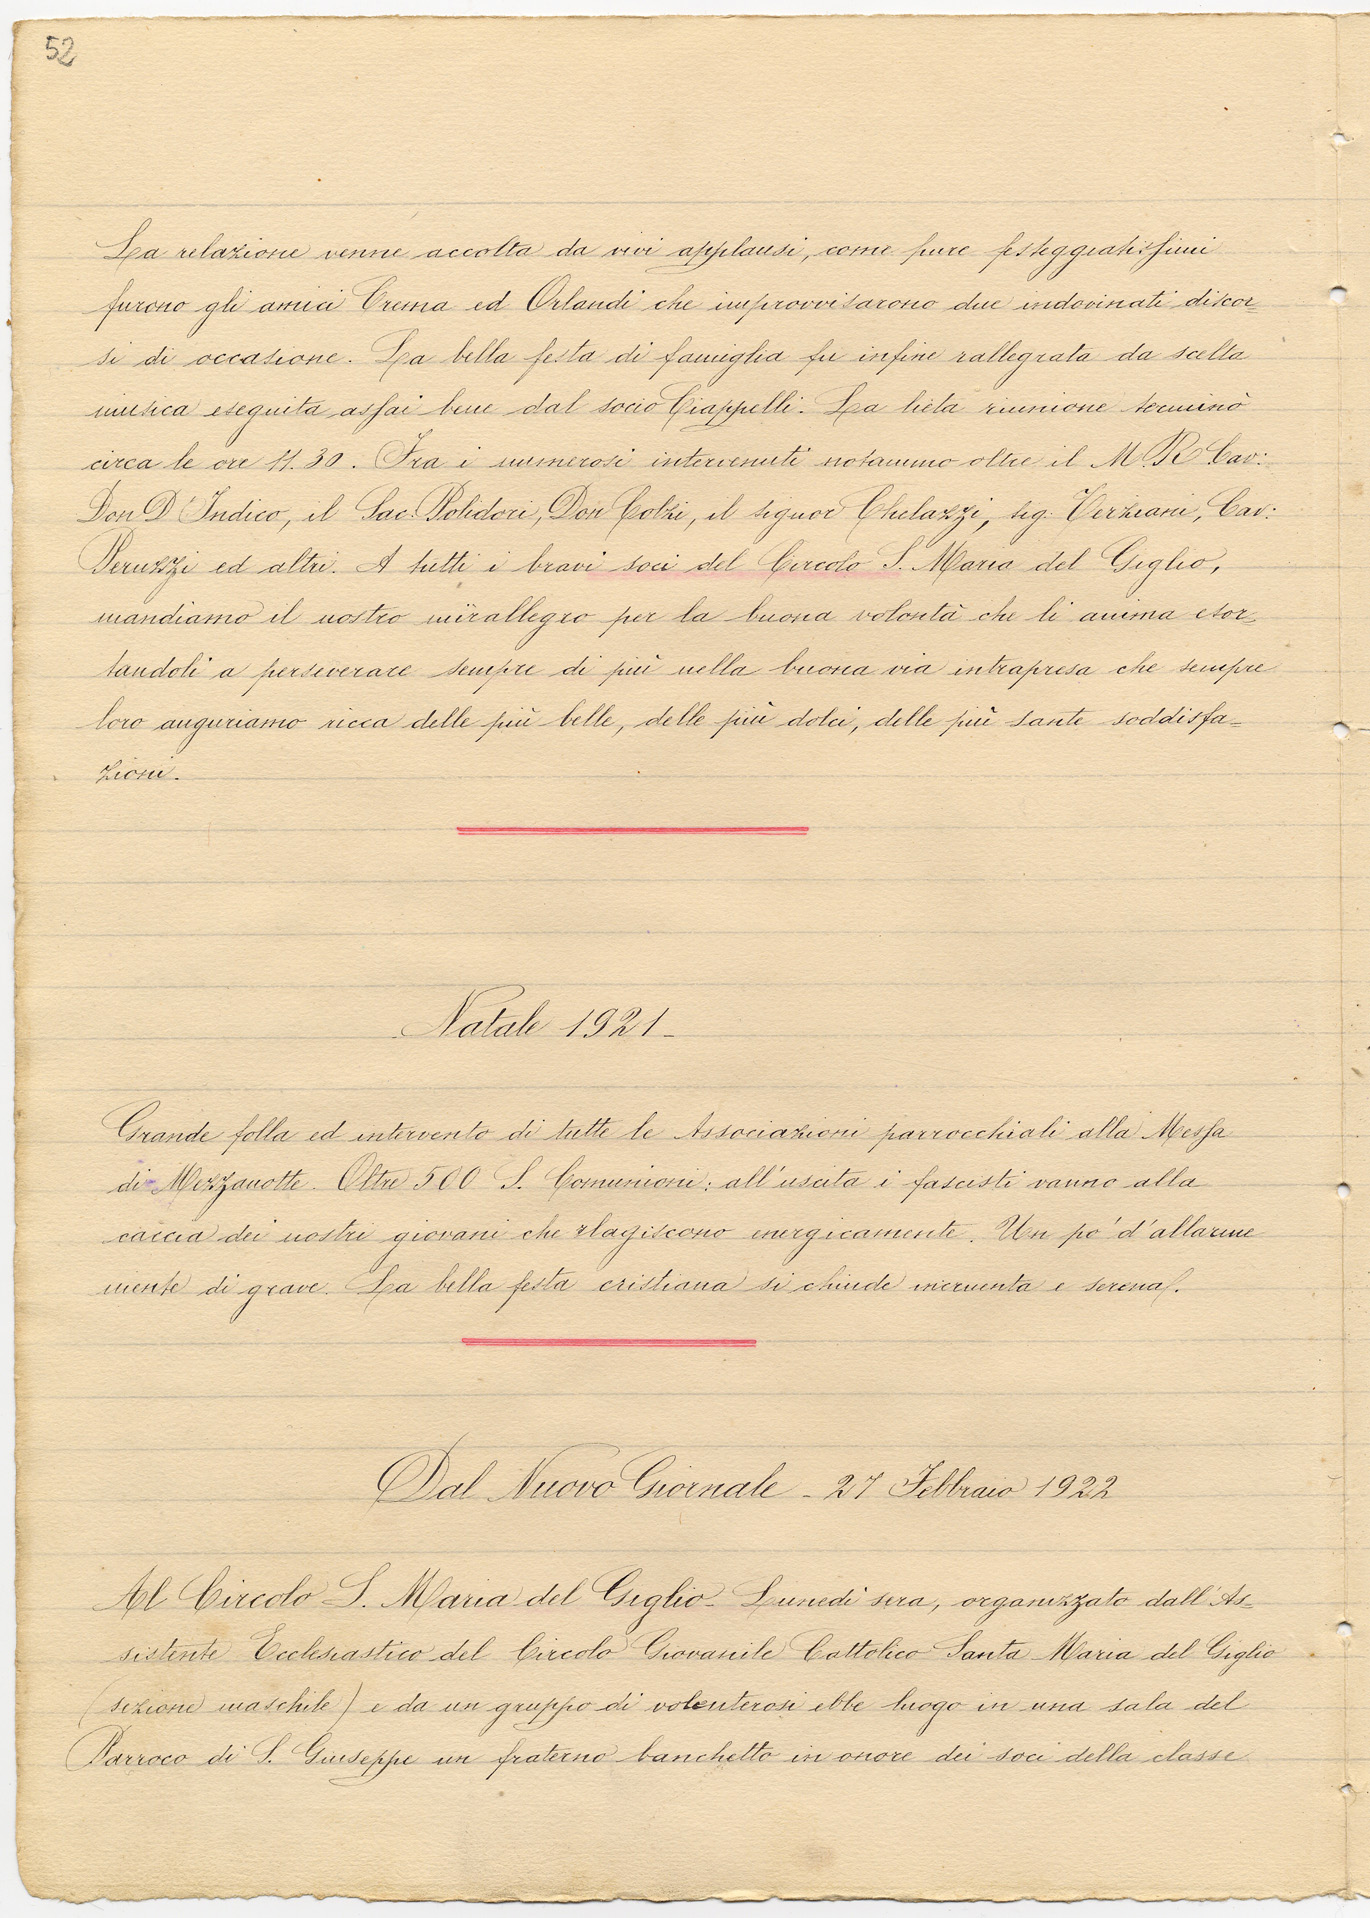 52
La relazione venne accolta da vivi applausi, come pure festeggiatissimi
furono gli amici Crema ed Orlandi che improvvisarono due indovinati discor=
si di occasione. La bella festa di famiglia fu infine rallegrata da scelta
musica eseguita assai bene dal socio Ciappelli. La lieta riunione terminò
circa le ore 11.30. Fra i numerosi intervenuti notammo oltre il M. R. Cav:
Don D'Indico, il Sac. Polidori, Don Colzi, il signor Chelazzi, sig. Verziani, Cav:
Peruzzi ed altri. A tutti i bravi soci del Circolo S. Maria del Giglio,
mandiamo il nostro mirallegro per la buona volontà che li anima esor=
tandoli a perseverare sempre di più nella buona via intrapresa che sempre
loro auguriamo ricca delle più belle, delle più dolci, delle più sante soddisfa=
zioni.
Natale 1921_
Grande folla ed intervento di tutte le Associazioni parrocchiali alla Messa
di Mezzanotte. Oltre 500 S. Comunioni: all'uscita i fascisti vanno alla
caccia dei nostri giovani che reagiscono energicamente. Un po' d'allarme
niente di grave. La bella festa cristiana si chiude incruenta e serena.
Dal Nuovo Giornale - 27 Febbraio 1922
Al Circolo S. Maria del Giglio - Lunedì sera, organizzato dall'As=
sistente Ecclesiastico del Circolo Giovanile Cattolico Santa Maria del Giglio
(sezione maschile) e da un gruppo di volenterosi ebbe luogo in una sala del
Parroco di S. Giuseppe un fraterno banchetto in onore dei soci della classe